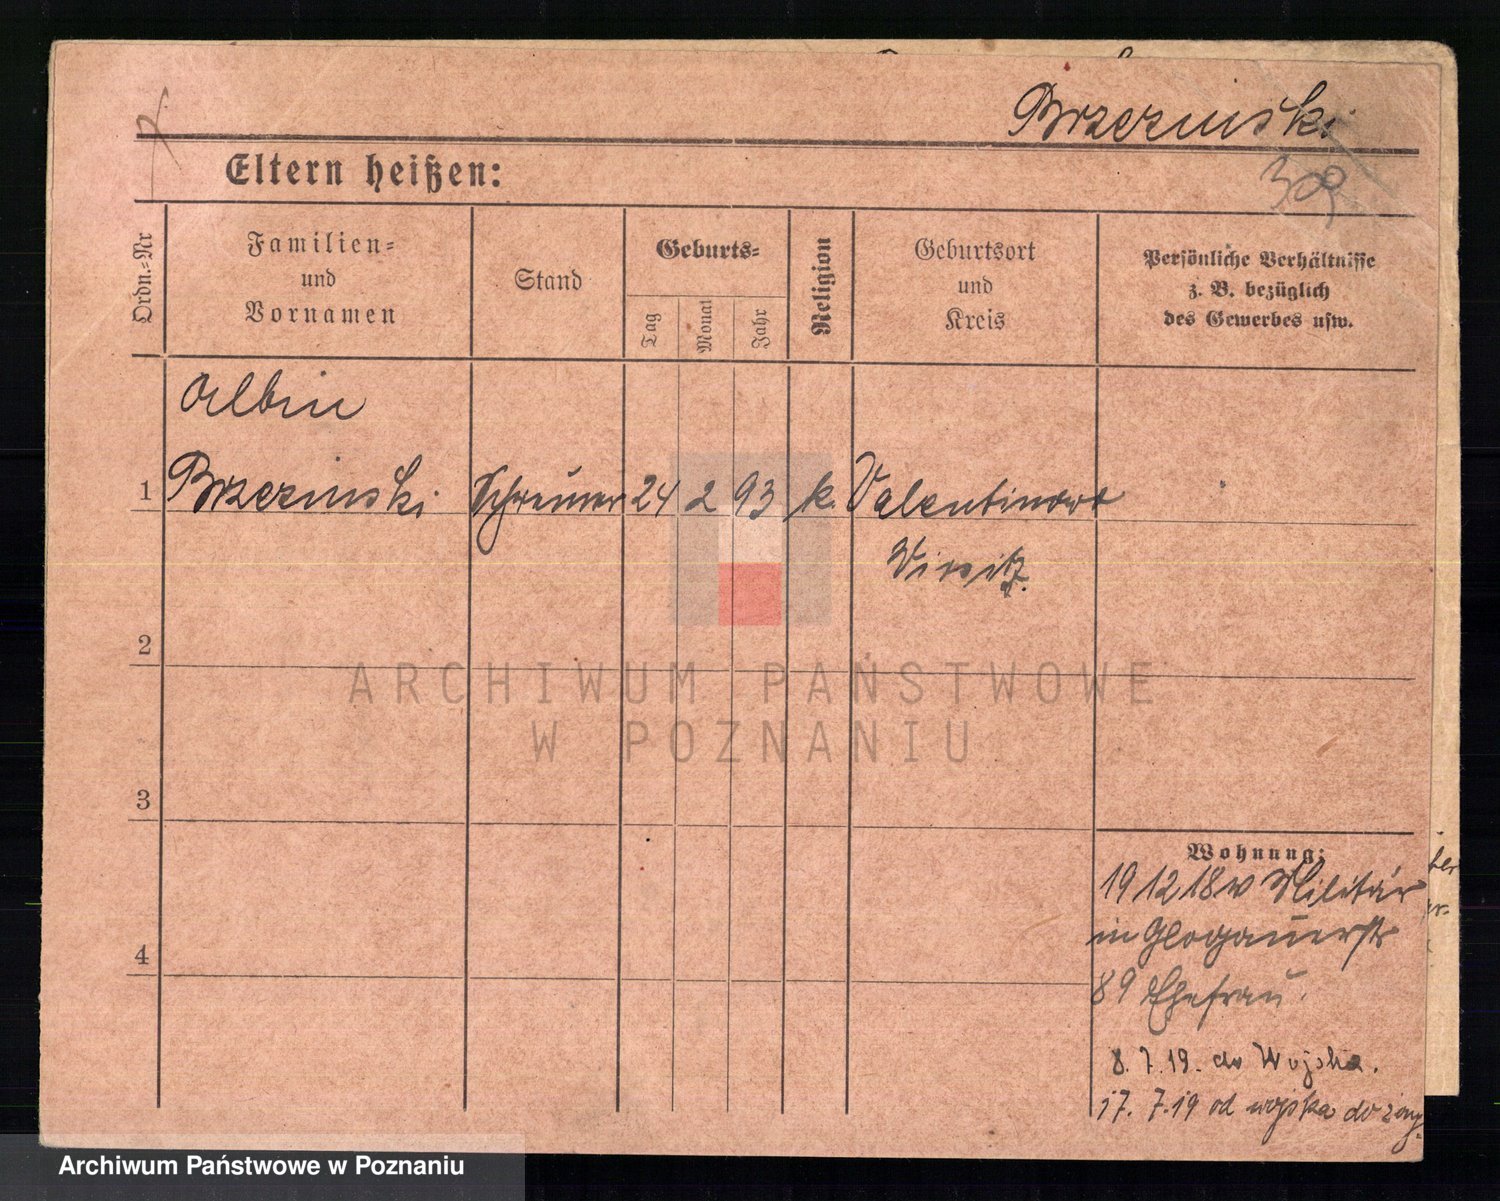 Brzezinski
Eltern heißen:
309
Ordn.-Nr
Familien-
und
Vornamen
Stand
Geburts-
Tag
Monat
Jahr
Religion
Geburtsort
und
Kreis
Persönliche Verhältnisse
z. B. bezüglich
des Gewerbes usw.
Albin
1 Brzezinski Schreiner 24 2 93 k. Valentinowo
Wirsitz.
2
3
4
Wohnung:
19 12 18 v Militär
in Glogauerstr
89 Ehefrau.
8. 7. 19. do Wojska.
17. 7. 19 od wojska do żony
ARCHIWUM PAŃSTWOWE
W POZNANIU
Archiwum Państwowe w Poznaniu